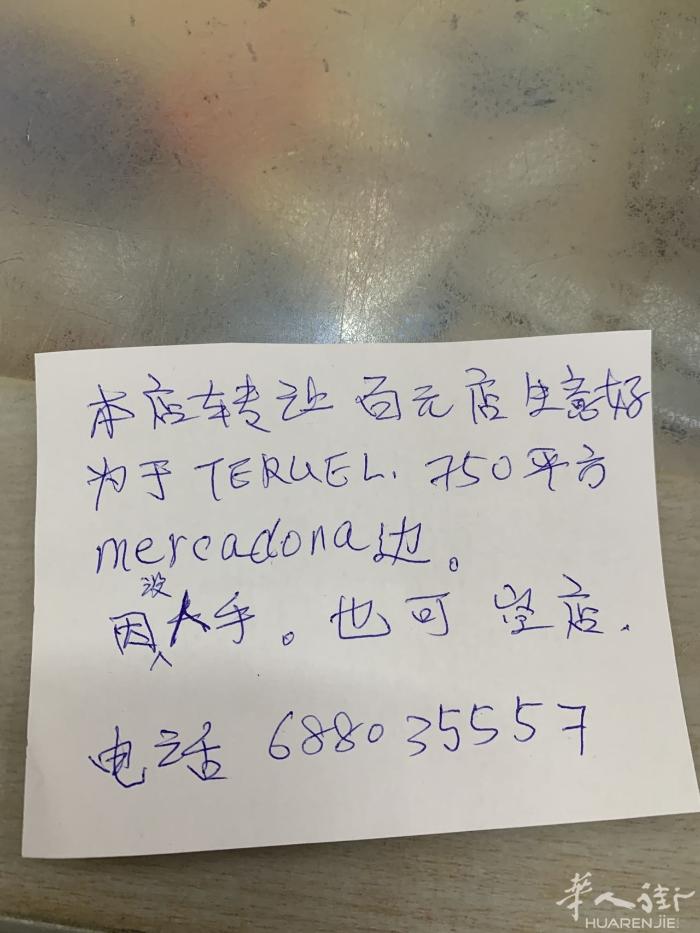 本店转让 百元店 生意好
为于 TERUEL. 750平方
mercadona边。
因没人手。也可 空店.
电话 688035557
華人街
HUARENJIE